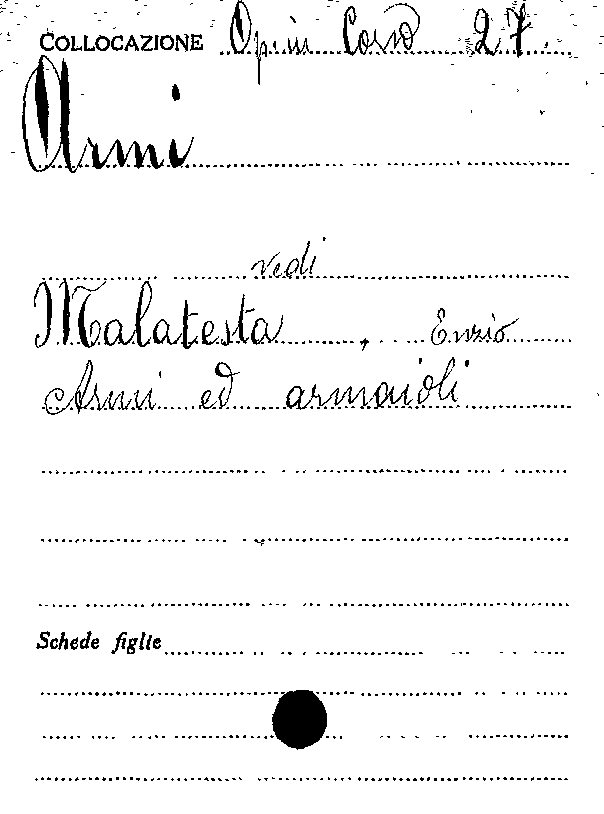 COLLOCAZIONE Op. in Corso 27.
Armi
vedi
Malatesta, Enzio
Armi ed armaioli
Schede figlie